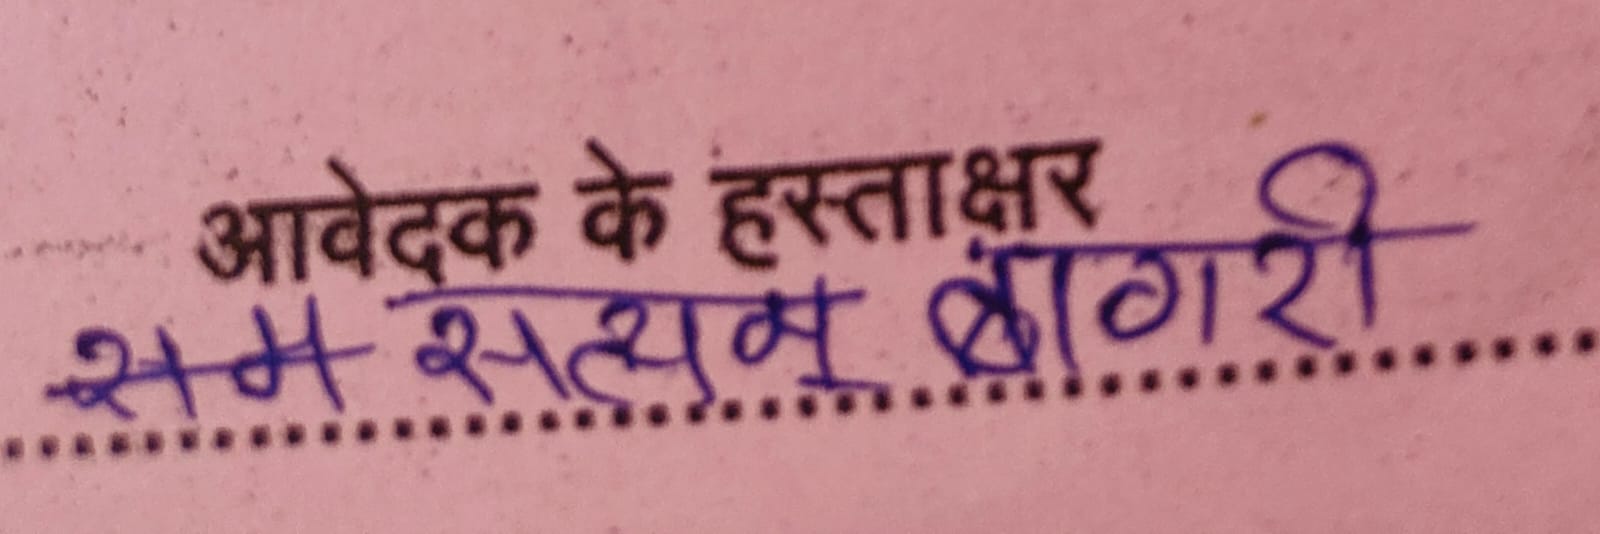 आवेदक के हस्ताक्षर
सत्यम बागरी